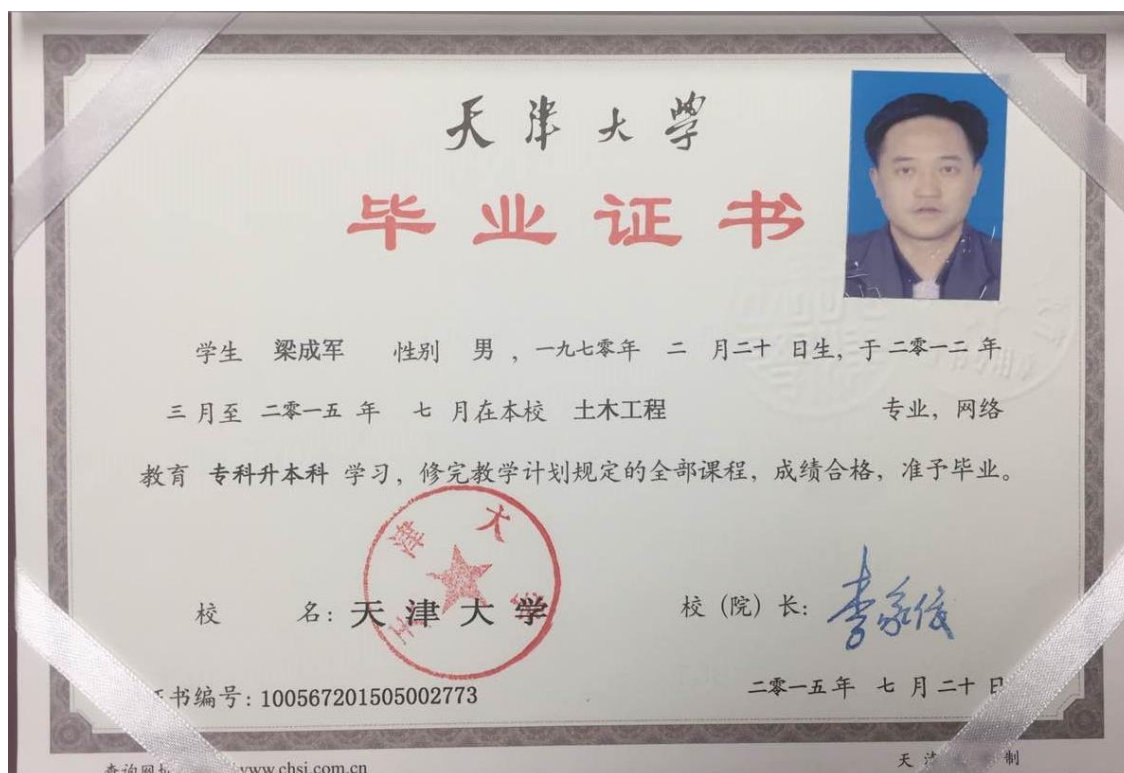 天津大学
毕业证书
学生 梁成军 性别 男，一九七零年 二 月二十 日生，于二零一二年
三月至 二零一五 年 七 月在本校 土木工程 专业，网络
教育 专科升本科 学习，修完教学计划规定的全部课程，成绩合格，准予毕业。
天津大学
校 名：天津大学 校（院）长：李家俊
书编号：100567201505002773 二零一五年 七 月二十日
查询网址 www.chsi.com.cn 天津 制